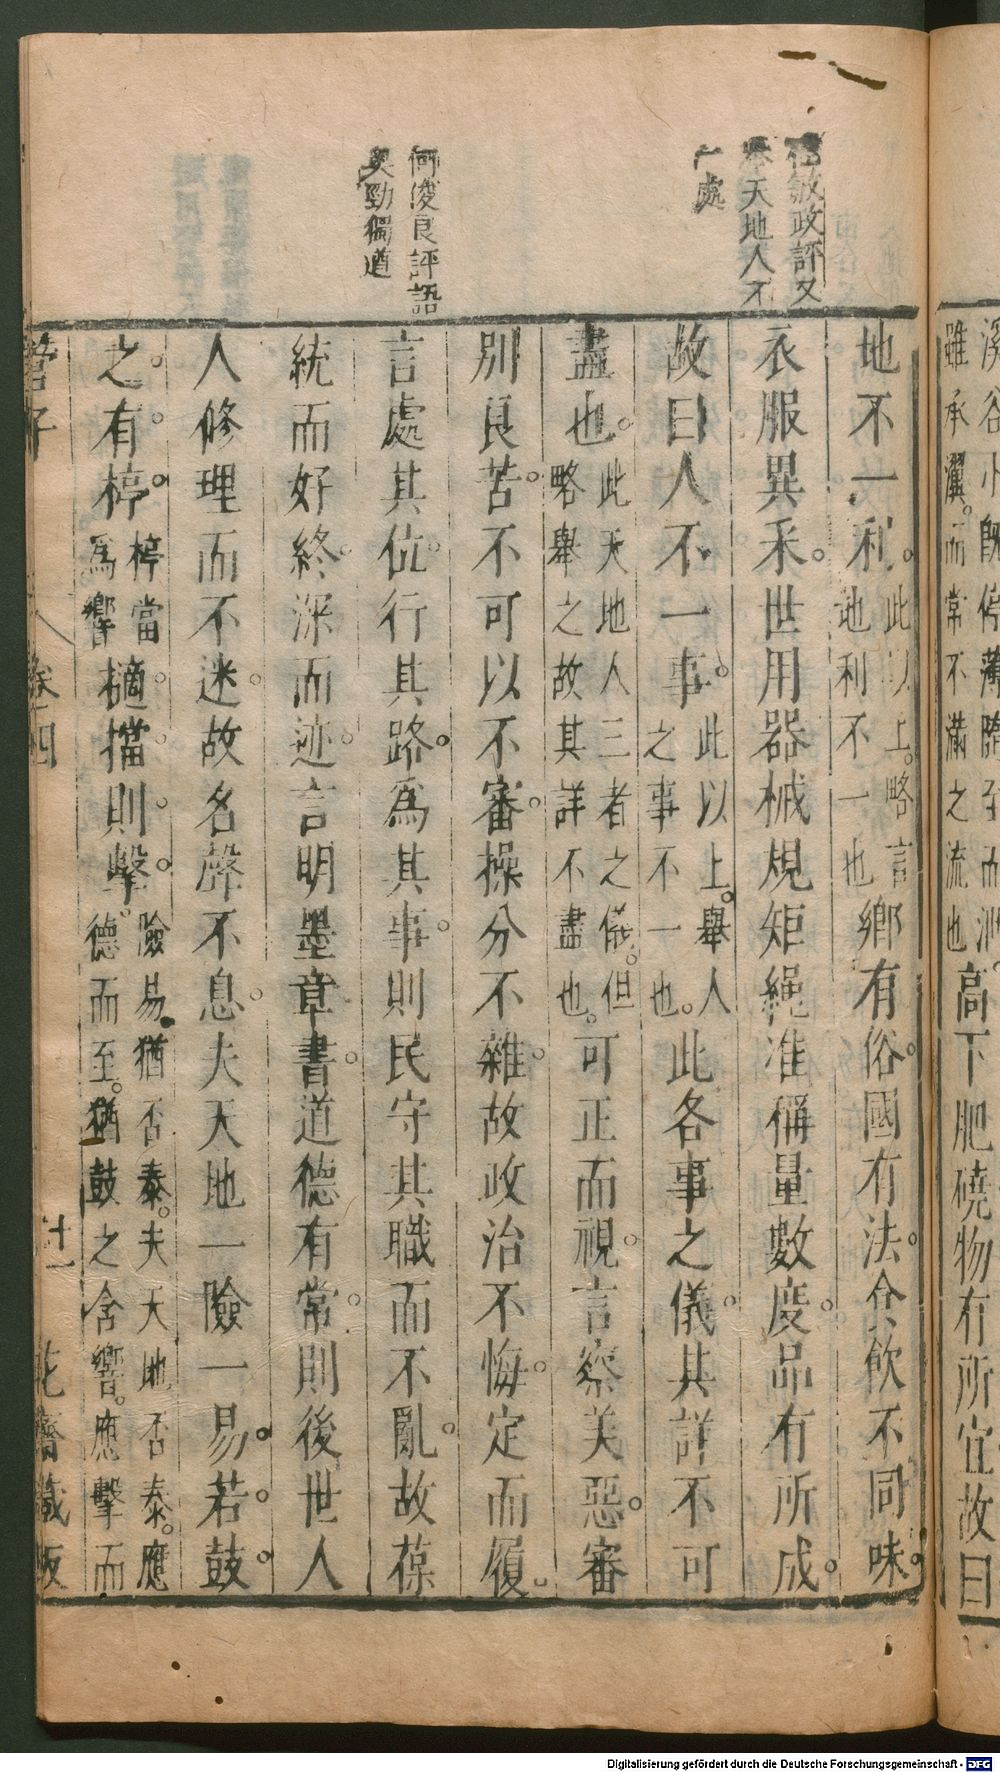 溪谷小既停薄隨至而涸
雖承瀷而常不滿之流也高下肥磽物有所宜故曰
政評又
天地人不
一處
何俊良評語
奥勁獨遒
地不一利此以上略言地利不一也鄉有俗國有法食飲不同味
衣服異采世用器械規矩繩准稱量數度品有所成
故曰人不一事此以上舉人之事不一也此各事之儀其詳不可
盡也此天地人三者之儀但略舉之故其詳不盡也可正而視言察美惡審
別良苦不可以不審操分不雜故政治不悔定而履
言處其位行其路爲其事則民守其職而不亂故葆
統而好終深而迹言明墨章書道德有常則後世人
人修理而不迷故名聲不息夫天地一險一易若鼓
之有桴桴當爲響擿擋則擊險易猶否泰夫天地否泰應德而至猶鼓之含響應擊而
管子 卷四 廿一 花齋藏板
Digitalisierung gefördert durch die Deutsche Forschungsgemeinschaft - DFG